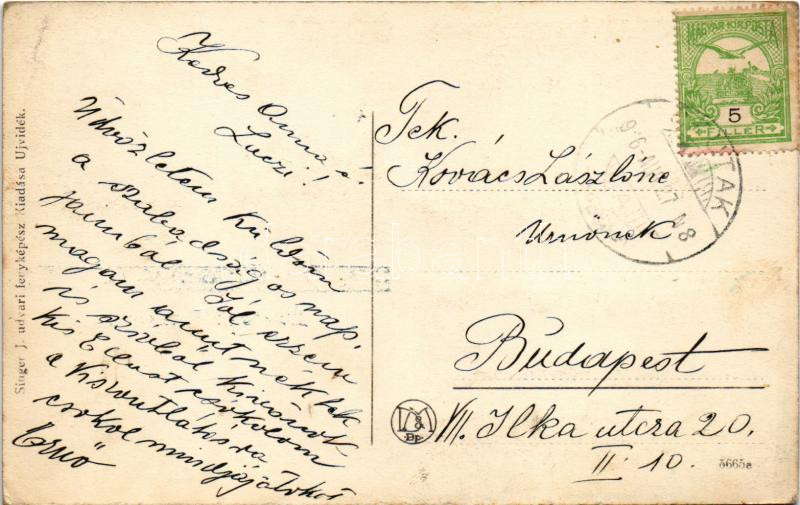 Kedves Anna és
Luczi!
Üdvözletem küldöm
a szabadságos nap,
jaimból. Jól érzem
magam amit nektek
is szívből kívánok
kis csókolom
a viszontlátásra
csokol mindjájatokat
Ernő
Singer J. udvari fényképész Kiadása Ujvidék.
MAGYAR KIR. POSTA
5
FILLÉR
Tek.
Kovács Lászlóné
Urnőnek
Budapest
VII. Ilka utcza 20.
II. 10.
D&M
Bp.
5665a